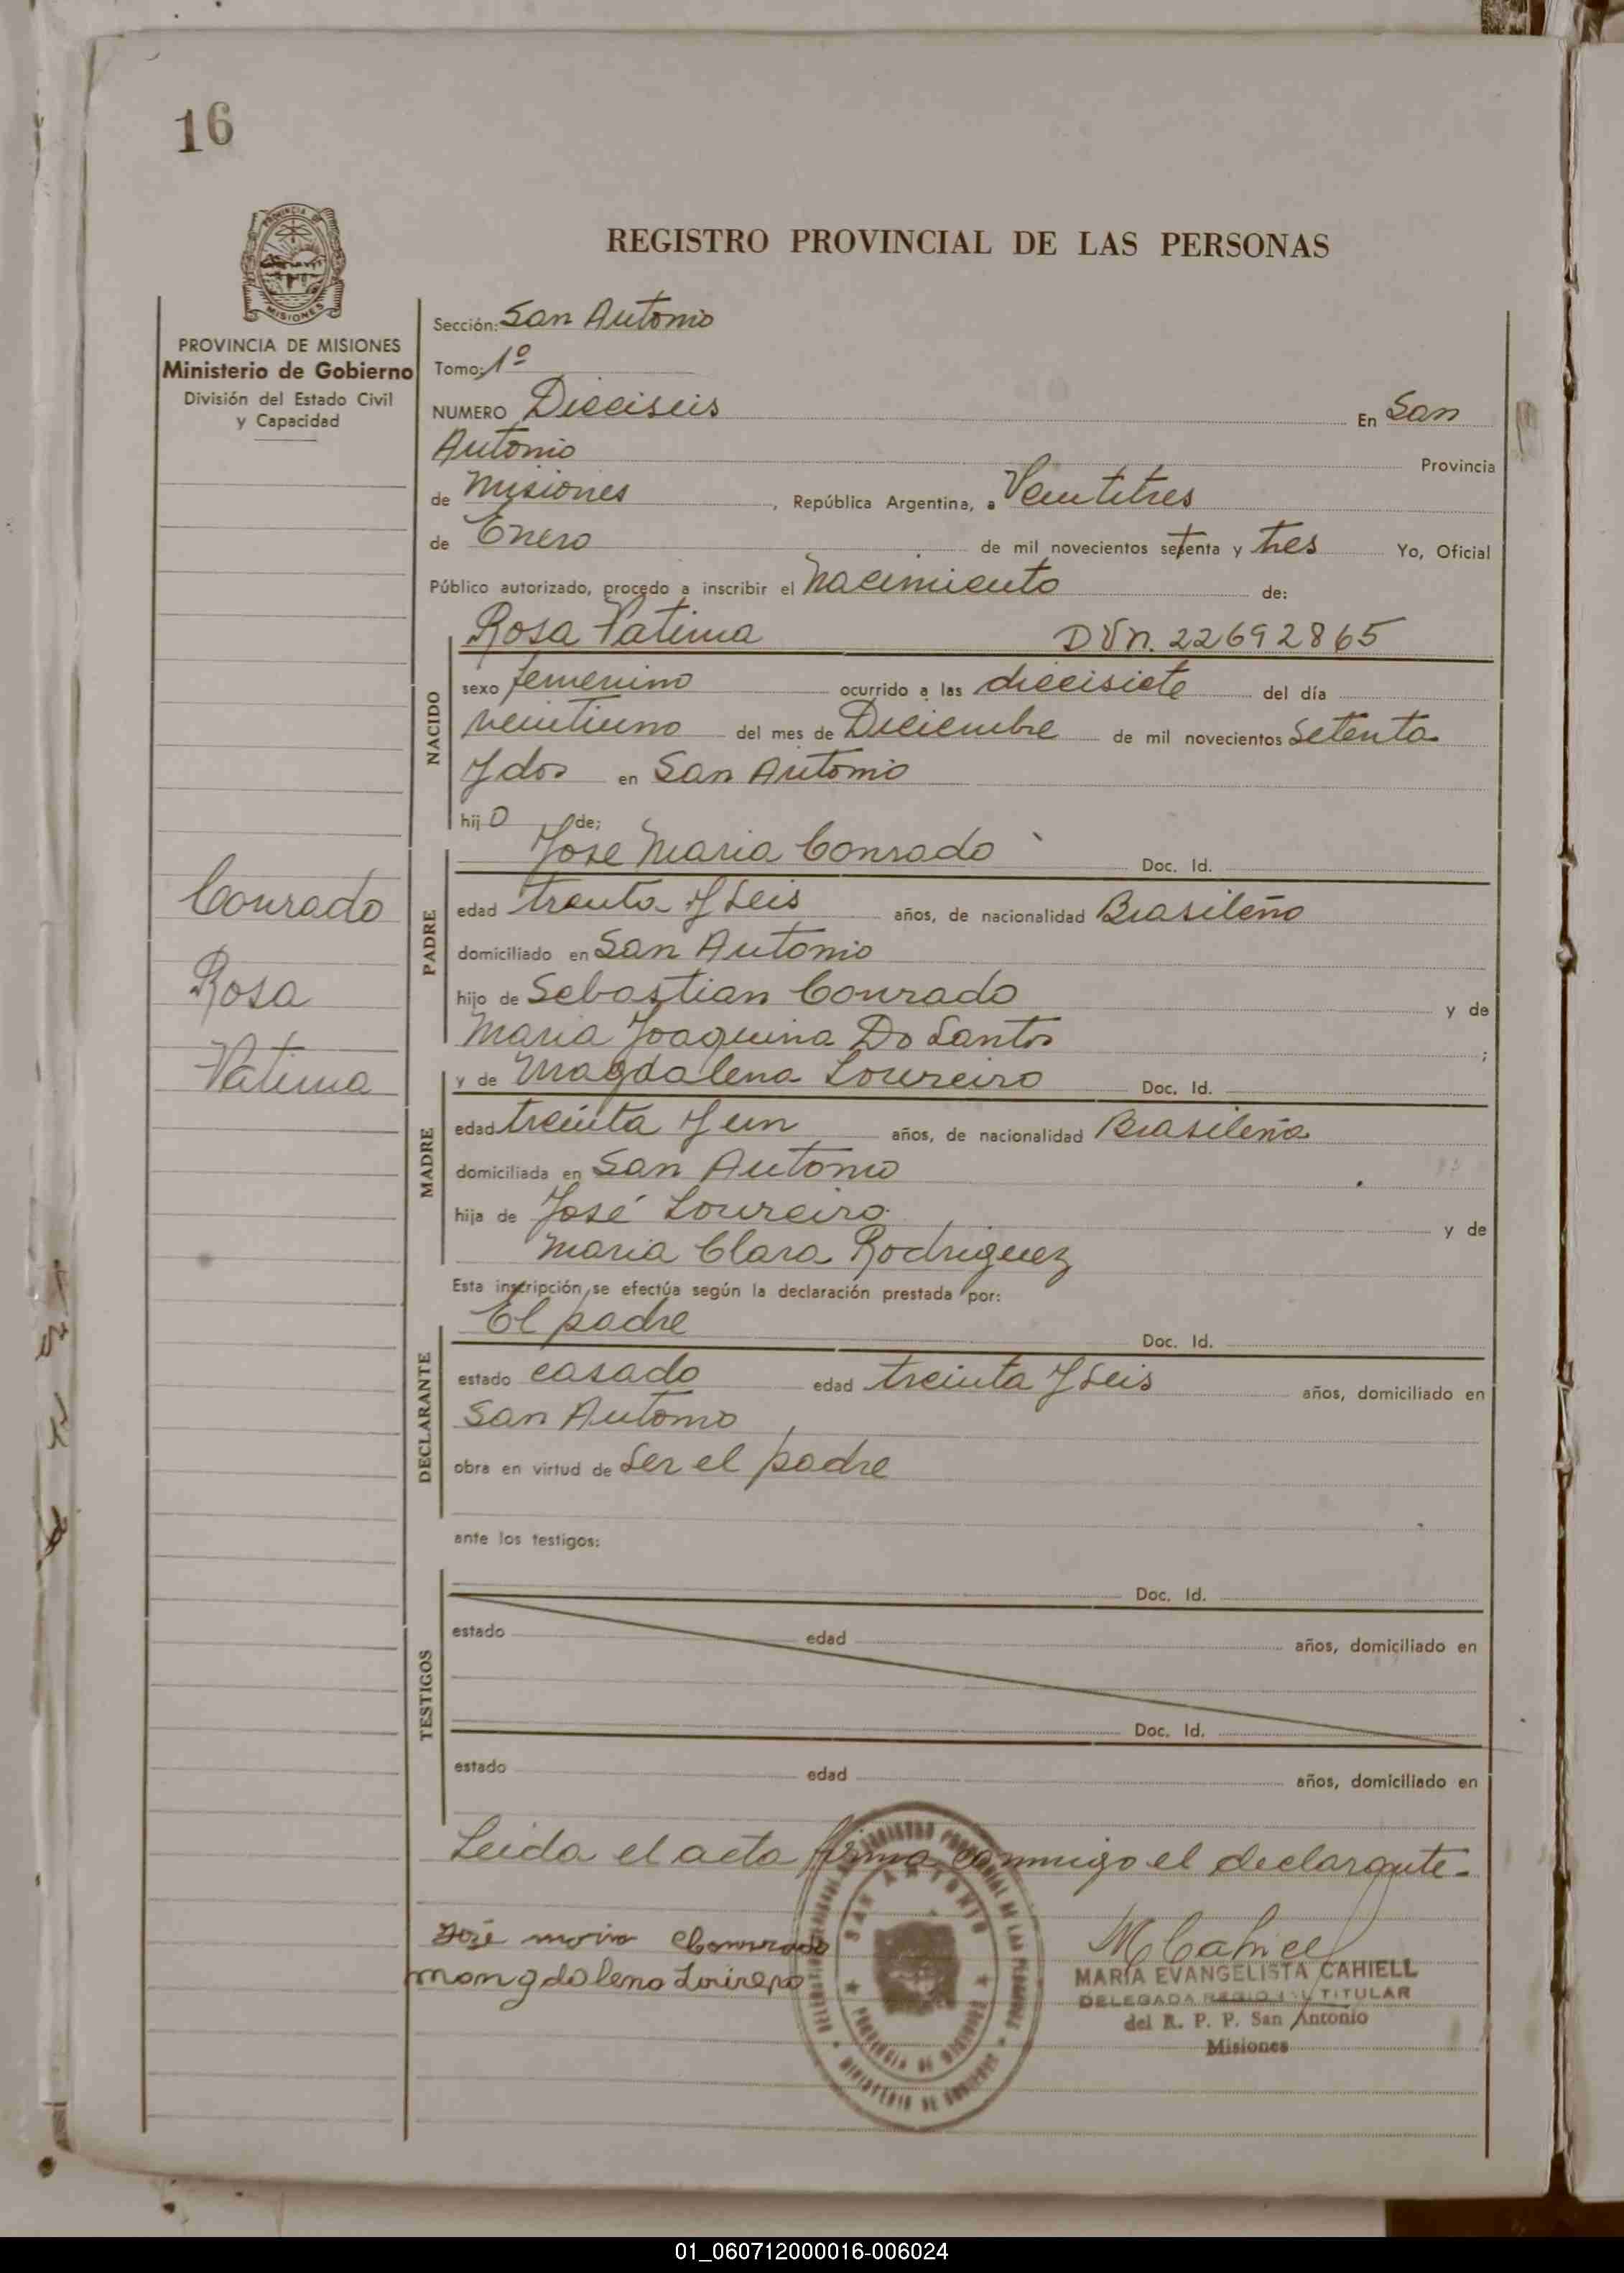 16
PROVINCIA DE
MISIONES
REGISTRO PROVINCIAL DE LAS PERSONAS
PROVINCIA DE MISIONES
Ministerio de Gobierno
División del Estado Civil
y Capacidad
Sección: San Antonio
Tomo: 1º
NUMERO Dieciseis En San
Antonio Provincia
de Misiones, República Argentina, a Veintitres
de Enero de mil novecientos setenta y tres Yo, Oficial
Público autorizado, procedo a inscribir el Nacimiento de:
NACIDO
Rosa Fatima DUN. 22692865
sexo femenino ocurrido a las diecisiete del día
veintiuno del mes de Diciembre de mil novecientos Setenta
Y dos en San Antonio
hijO de;
Conrado
Rosa
Fatima
PADRE
Jose Maria Conrado Doc. Id.
edad trenta Y Seis años, de nacionalidad Brasileño
domiciliado en San Antonio
hijo de Sebastian Conrado y de
Maria Joaquina Do Santos ;
MADRE
y de Magdalena Loureiro Doc. Id.
edad treinta Y un años, de nacionalidad Brasileña
domiciliada en San Antonio
hija de José Loureiro y de
Maria Clara Rodriguez
Esta inscripción se efectúa según la declaración prestada por:
DECLARANTE
El padre Doc. Id.
estado casado edad treinta Y Seis años, domiciliado en
San Antonio
obra en virtud de Ser el padre
ante los testigos:
TESTIGOS
Doc. Id.
estado edad años, domiciliado en
Doc. Id.
estado edad años, domiciliado en
Leida el acta firma conmigo el declarante.-
José maria Conrrado
mangdalena Loirero
SAN ANTONIO
PROVINCIA DE MISIONES
MINISTERIO DE GOBIERNO
MCahiell
MARIA EVANGELISTA CAHIELL
DELEGADA REGIONAL TITULAR
del R. P. P. San Antonio
Misiones
01_060712000016-006024